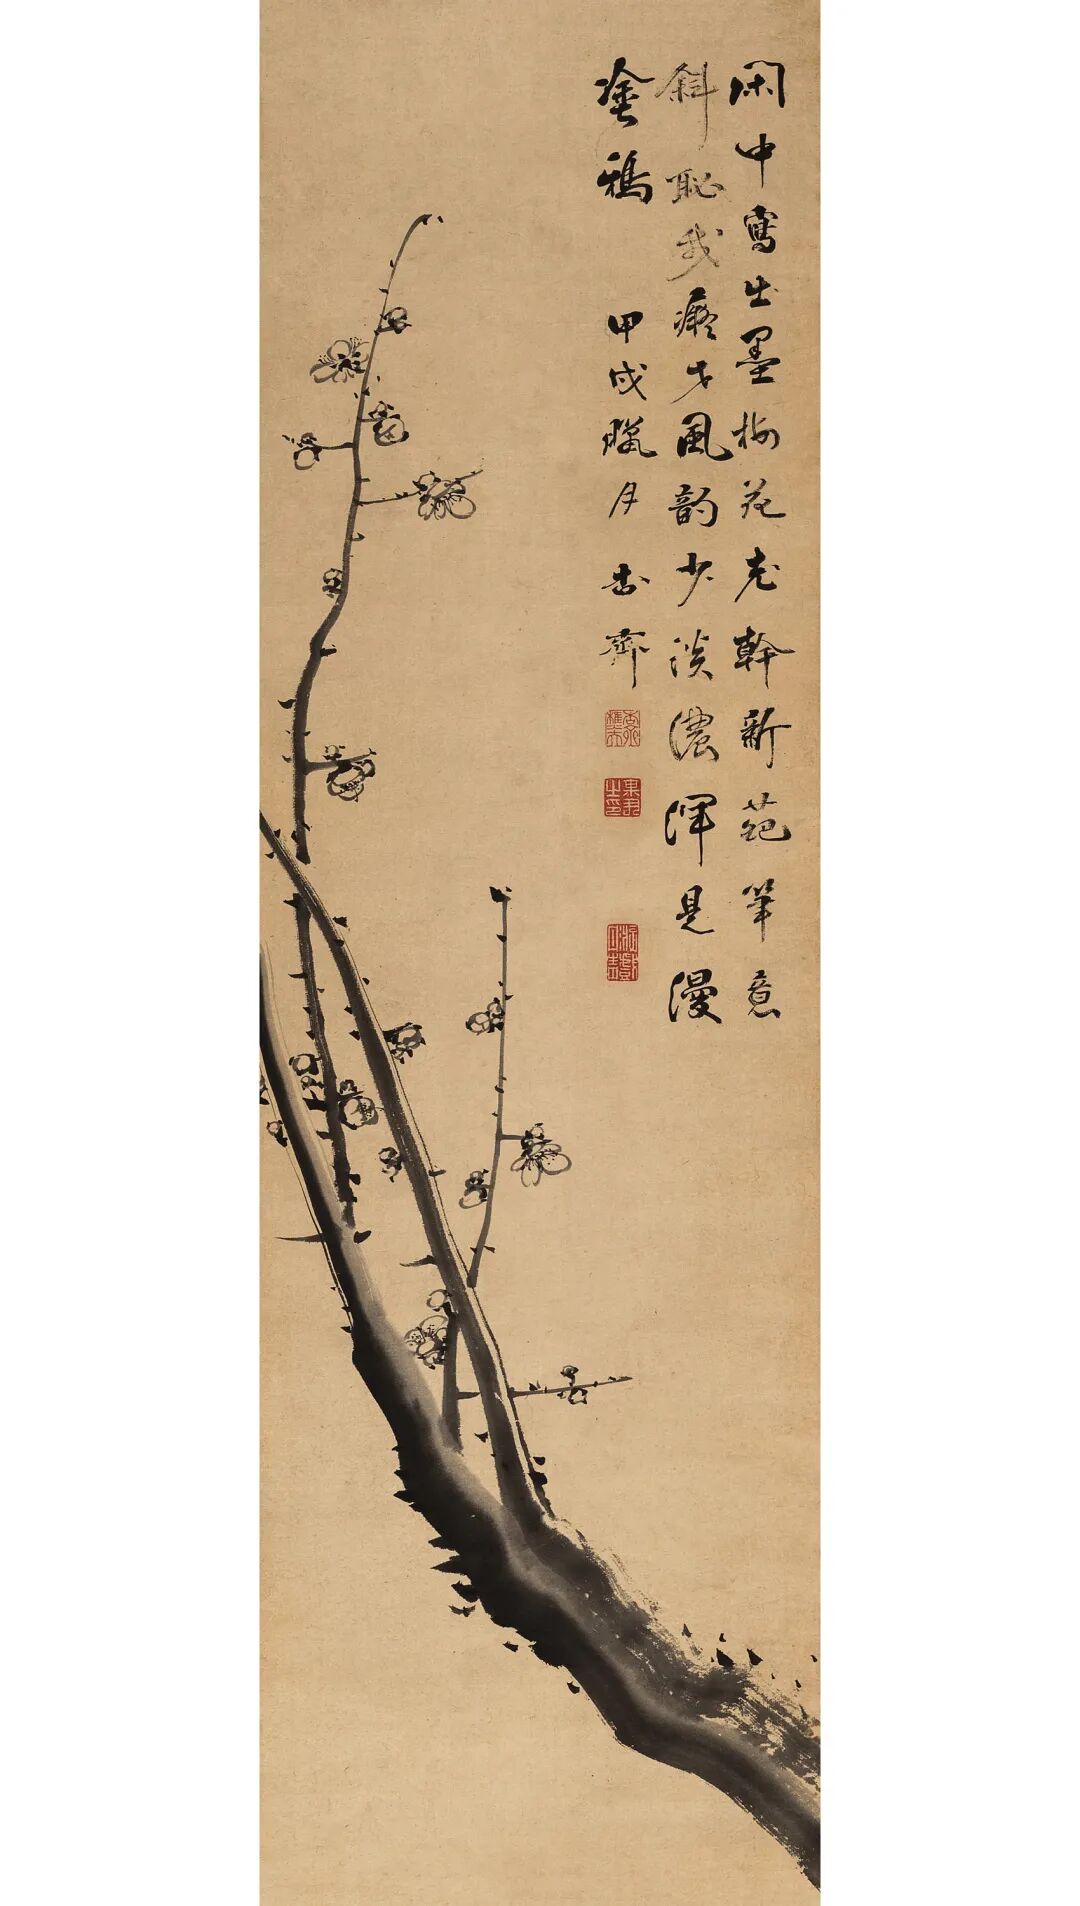 閑中寫出墨梅花老幹新葩筆意
斜恥我癡才風韵少淡濃渾是漫
塗鴉 甲戌臘月 齋